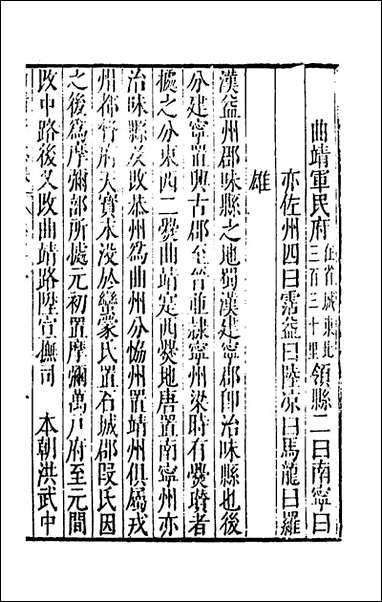 曲靖軍民府在省城東北三百三十里領縣二曰南寧曰
亦佐州四曰霑益曰陸凉曰馬龍曰羅
雄
漢益州郡味縣之地蜀漢建寧郡卽治味縣也後
分建寧置興古郡至晉並隸寧州梁時有爨瓚者
據之分東西二爨曲靖定西爨地唐置南寧州亦
治味縣後改恭州爲曲州分恊州置靖州俱屬戎
州都督府天寶末没於蠻蒙氏置石城郡段氏因
之後爲摩彌部所據元初置摩彌萬戸府至元間
改中路後又改曲靖路陞宣撫司　本朝洪武中